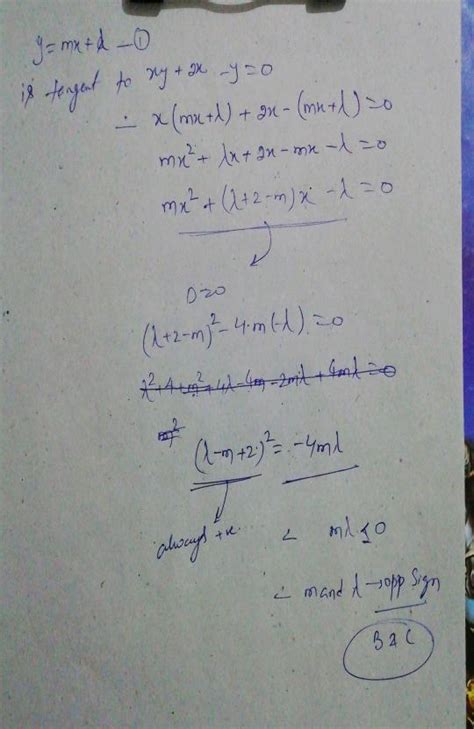 y = mx + λ — ①
is tangent to xy + 2x - y = 0
∴ x(mx+λ) + 2x - (mx+λ) = 0
mx² + λx + 2x - mx - λ = 0
mx² + (λ+2-m)x - λ = 0
D=0
(λ+2-m)² - 4·m(-λ) = 0
λ² + 4 + m² + 4λ - 4m - 2mλ + 4mλ = 0
m²
(λ-m+2)² = -4mλ
always +ve
∴ mλ ≤ 0
∴ m and λ → opp sign
B & C